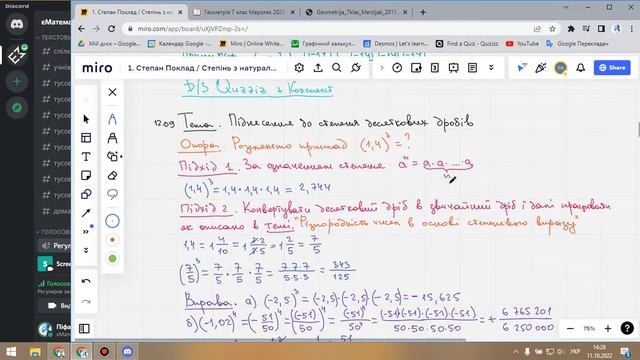 Discord
1. Степан Поклад / Степінь з
Геометрія 7 клас Мерзляк 202
Geometrija_7klas_Merzljak_2011
miro.com/app/board/uXjVPZmp-2s=/
Мій диск – Google
Календар Google
Miro | Online White
Графічний калькул
Desmos | Let's learn
Find a Quiz - Quizizz
Google Перекладач
«Матема
ТЕКСТОВЫ
miro
1. Степан Поклад / Степінь з натурал
Д/З Quizziz + Конспект
12.09 Тема. Піднесення до степеня десяткових дробів
Опора. Розглянемо приклад (1,4)³ = ?
Підхід 1. За означенням степеня aⁿ = a·a·...·a
n
(1,4)³ = 1,4·1,4·1,4 = 2,744
Підхід 2. Конвертувати десятковий дріб в звичайний дріб і далі працювати
як описано в темі: "Різнорідність чисел в основі степеневого виразу"
1,4 = 1 4/10 = 1 2·2/2·5 = 1 2/5 = 7/5
(7/5)³ = 7/5 · 7/5 · 7/5 = 7·7·7/5·5·5 = 343/125
Вправа. а) (-2,5)³ = (-2,5)·(-2,5)·(-2,5) = -15,625
б) (-1,02)⁴ = (-51/50)⁴ = ((-51)/50)⁴ = (-51)⁴/50⁴ = (-51)(-51)·(-51)·(-51)/50·50·50·50 = + 6 765 201/6 250 000
Голосов
75%
УКР
14:28
11.10.2022